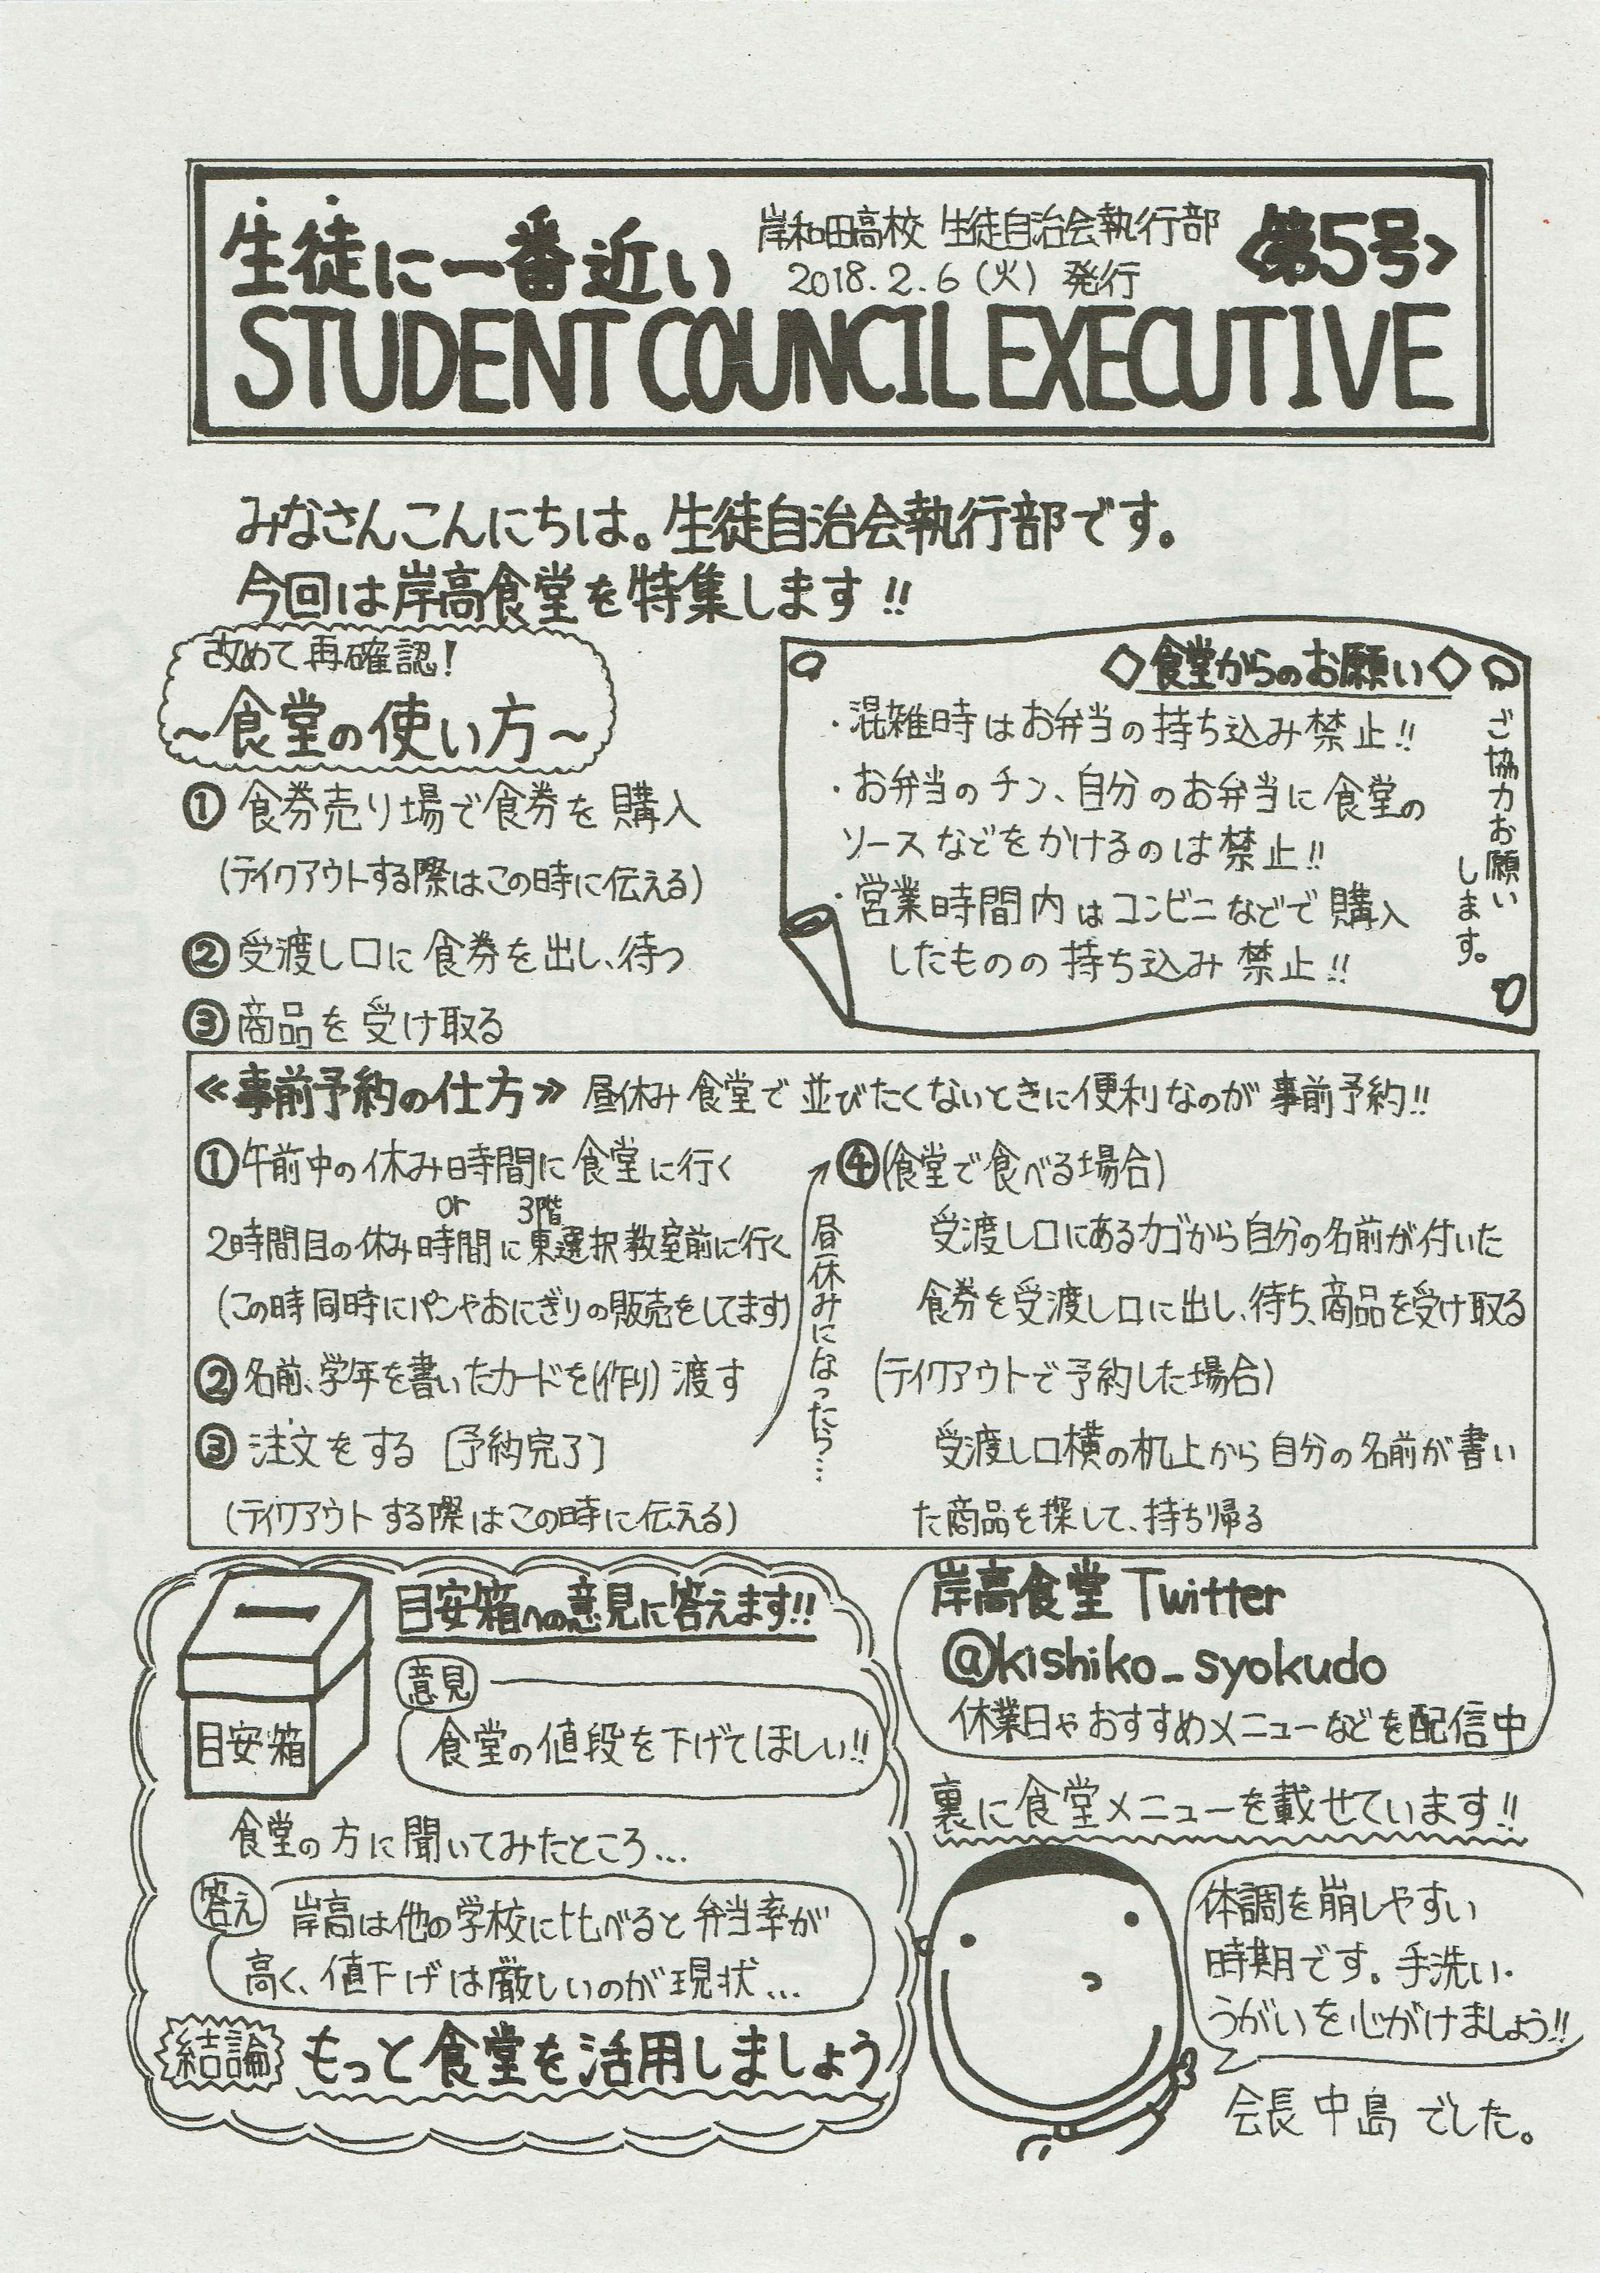 生徒に一番近い
岸和田高校 生徒自治会執行部
2018.2.6(火) 発行
<第5号>
STUDENT COUNCIL EXECUTIVE
みなさんこんにちは。生徒自治会執行部です。
今回は岸高食堂を特集します!!
改めて再確認!
～食堂の使い方～
①食券売り場で食券を購入
(テイクアウトする際はこの時に伝える)
②受渡し口に食券を出し、待つ
③商品を受け取る
◇食堂からのお願い◇
・混雑時はお弁当の持ち込み禁止!!
・お弁当のチン、自分のお弁当に食堂の
ソースなどをかけるのは禁止!!
・営業時間内はコンビニなどで購入
したものの持ち込み禁止!!
ご協力お願い
します。
≪事前予約の仕方≫ 昼休み食堂で並びたくないときに便利なのが事前予約!!
①午前中の休み時間に食堂に行く
or
2時間目の休み時間に3階東選択教室前に行く
(この時同時にパンやおにぎりの販売をしてます)
②名前、学年を書いたカードを(作り)渡す
③注文をする [予約完了]
(テイクアウトする際はこの時に伝える)
昼休みになったら…
④(食堂で食べる場合)
受渡し口にあるカゴから自分の名前が付いた
食券を受渡し口に出し、待ち、商品を受け取る
(テイクアウトで予約した場合)
受渡し口横の机上から自分の名前が書い
た商品を探して、持ち帰る
目安箱への意見に答えます!!
目安箱
意見
食堂の値段を下げてほしい!!
食堂の方に聞いてみたところ…
答え
岸高は他の学校に比べると弁当率が
高く、値下げは厳しいのが現状…
結論
もっと食堂を活用しましょう
岸高食堂 Twitter
@kishiko_syokudo
休業日やおすすめメニューなどを配信中
裏に食堂メニューを載せています!!
体調を崩しやすい
時期です。手洗い・
うがいを心がけましょう!!
会長 中島 でした。